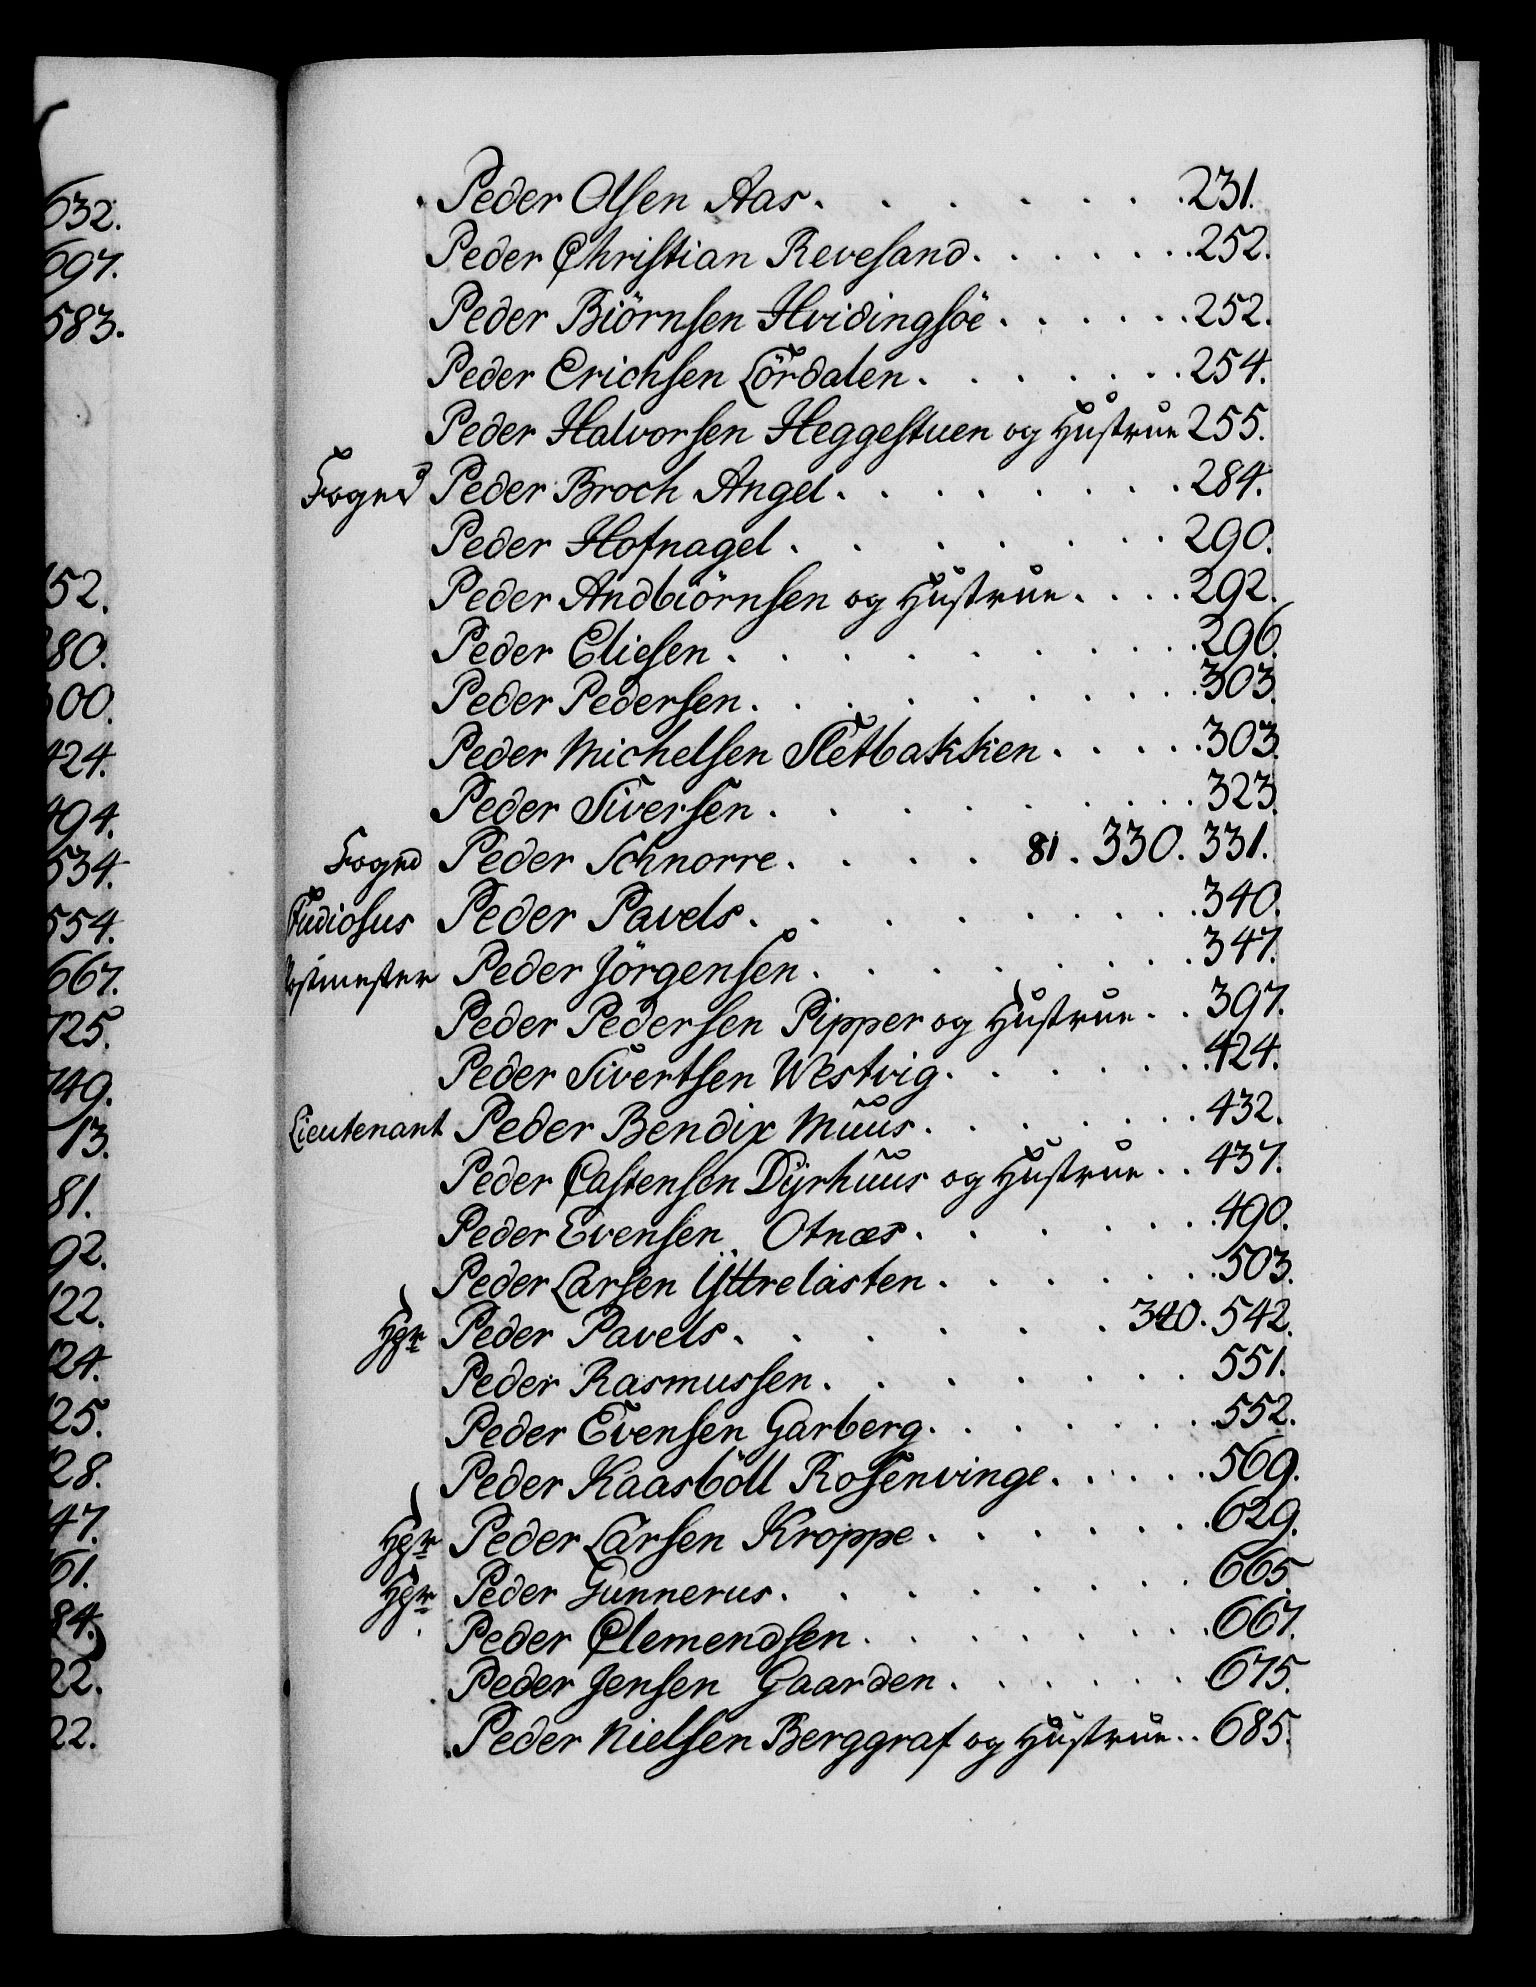 632.
697.
583.
52.
80.
00.
424.
494.
534.
554.
667.
725.
749.
13.
81.
92.
22.
24.
25.
28.
47.
61.
84.
22.
22.
Peder Olsen Aas. . . . . . . . 231.
Peder Christian Revesand. . . . . . . 252.
Peder Biörnsen Hvidingsöe . . . . . . 252.
Peder Erichsen Lördalen. . . . . . . 254.
Peder Halvorsen Heggestuen og Hustrue 255.
Foged Peder Broch Angel. . . . . . . . 284.
Peder Hofnagel . . . . . . . . 290.
Peder Andbiörnsen og Hustrue. . . . 292.
Peder Eliesen . . . . . . . . . 296.
Peder Pedersen. . . . . . . . . 303.
Peder Michelsen Sletbakken . . . . . 303.
Peder Siversen . . . . . . . . . 323.
Foged Peder Schnorre. . . . . 81. 330. 331.
Studiosus Peder Pavels. . . . . . . . 340.
Postmester Peder Jörgensen . . . . . . . 347.
Peder Pedersen Pipper og Hustrue. . 397.
Peder Sivertsen Westvig. . . . . . . 424.
Lieutenant Peder Bendix Muus. . . . . . . 432.
Peder Castensen Dyrhuus og Hustrue. . 437.
Peder Evensen Otnæs. . . . . . . 490.
Peder Larsen Yttrelasten. . . . . . . 503.
Hgr Peder Pavels. . . . . . . 340. 542.
Peder Rasmussen. . . . . . . . 551.
Peder Evensen Garberg. . . . . . . 552.
Peder Kaasböll Rosenvinge. . . . . . 569.
Hgr Peder Larsen Kroppe . . . . . . . 629.
Hgr Peder Gunnerus. . . . . . . . 665.
Peder Clemendsen . . . . . . . . 667.
Peder Jensen Gaarden . . . . . . 675.
Peder Nielsen Berggraf og Hustrue. . 685.